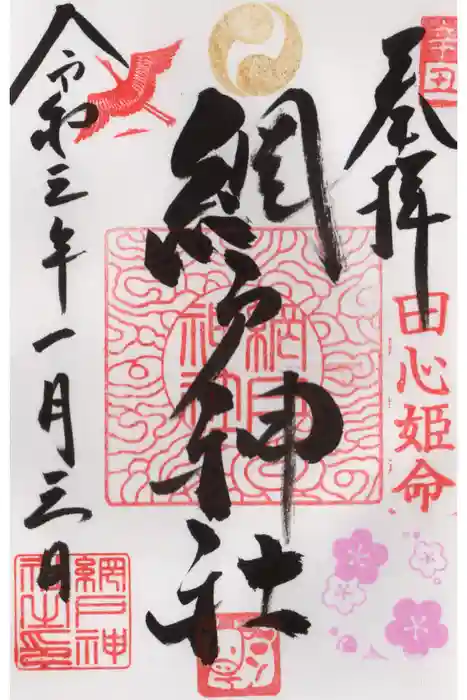 辛丑
奉拝
田心姫命
網戸神社
網戸
神社
令和三年一月三日
網戸神
社之印